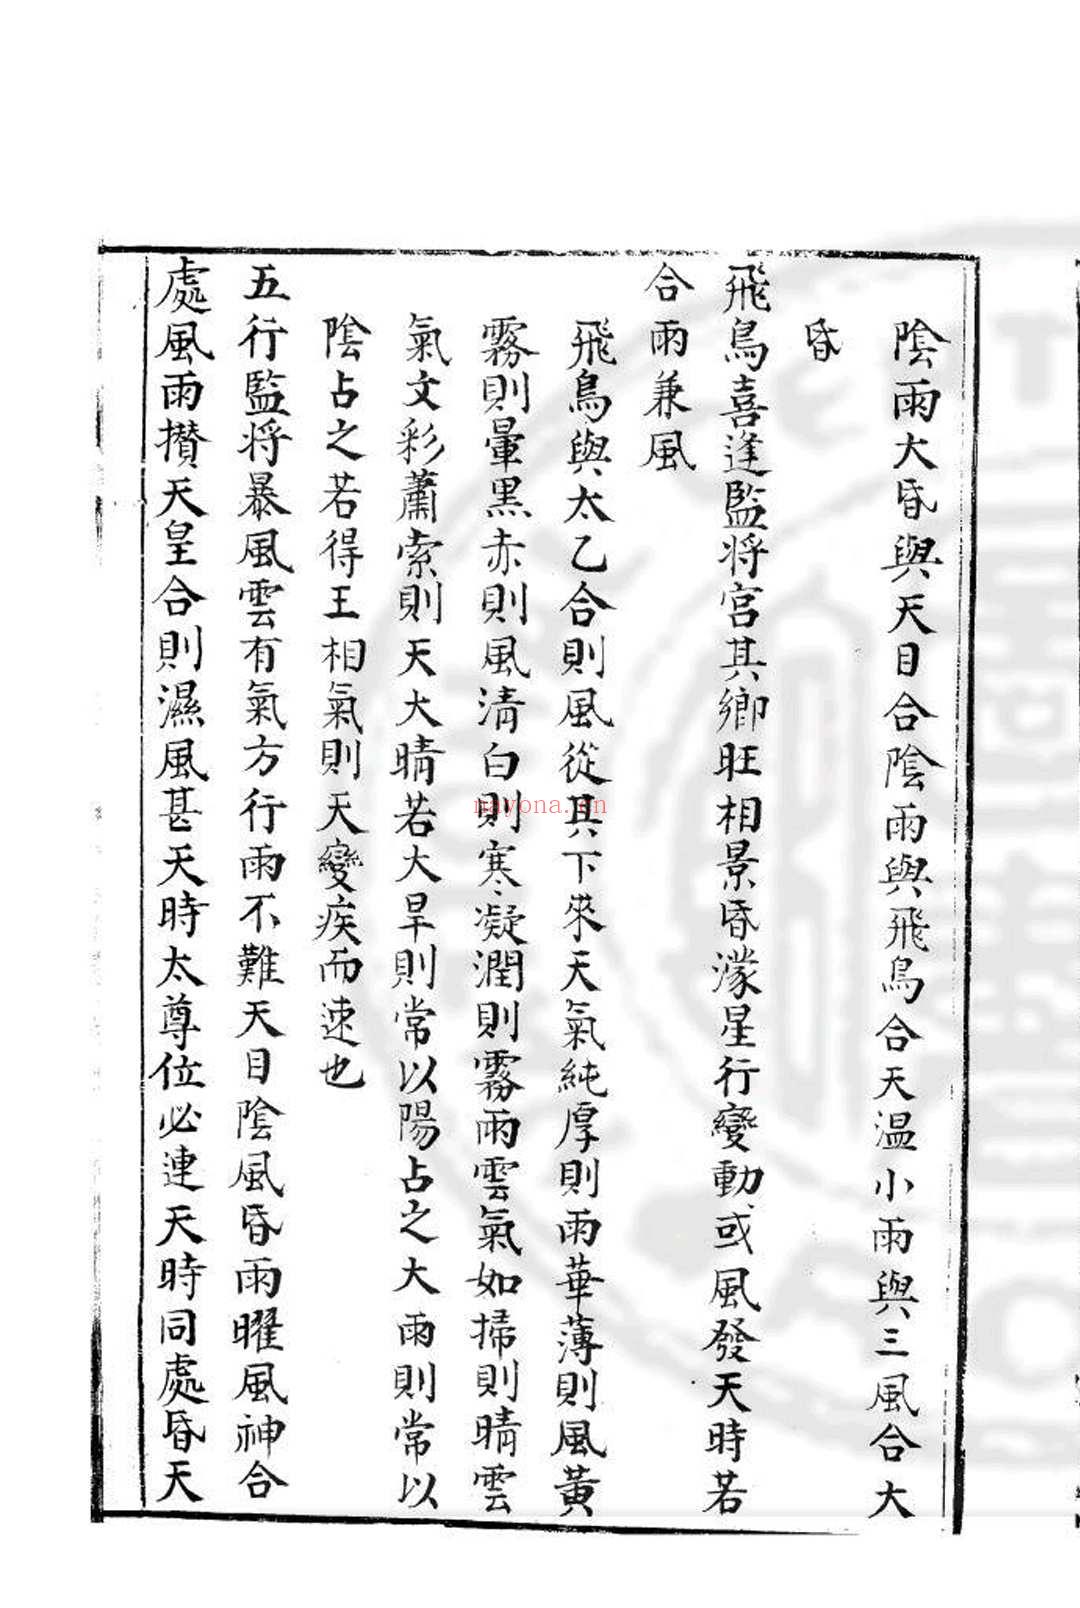 陰雨大昏與天目合陰雨與飛鳥合天温小雨與三風合大
昏
飛鳥喜逢監将宫其鄉旺相景昏濛星行變動或風發天時若
合雨兼風
飛鳥與太乙合則風從其下來天氣純厚則雨華薄則風黄
霧則暈黒赤則風清白則寒凝潤則霧雨雲氣如掃則晴雲
氣文彩蕭索則天大晴若大旱則常以陽占之大雨則常以
陰占之若得王相氣則天變疾而速也
五行監将暴風雲有氣方行雨不難天目陰風昏雨曜風神合
處風雨攅天皇合則濕風甚天時太尊位必連天時同處昏天
nayona.cn